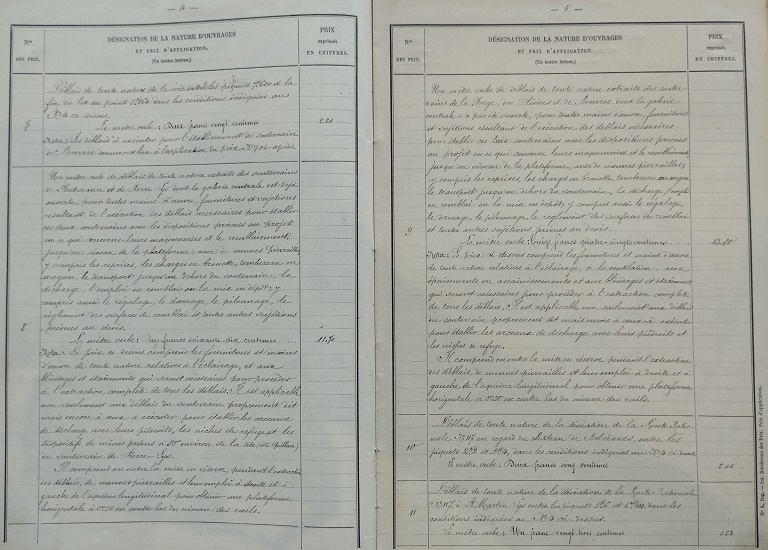 — 4 —
Nos
DES PRIX.
DÉSIGNATION DE LA NATURE D'OUVRAGES
ET PRIX D'APPLICATION.
(En toutes lettres.)
PRIX
exprimés
EN CHIFFRES.
Déblais de toute nature de la voie entre les piquets et la
fin du lot au point dans les conditions indiquées aux
Nº 4 ci dessus.
7 Le mètre cube: Deux francs vingt centimes 2.20
Nota: les déblais à exécuter pour l'établissement du souterrain
de donneront lieu à l'application du prix Nº 9 ci après.
Un mètre cube de déblais de toute nature extraits des souterrains
de et de Pierre dont la galerie centrale est déjà
ouverte, pour toutes mains d'œuvre, fournitures et sujétions
résultant de l'exécution des déblais nécessaires pour établir
ces deux souterrains avec les dispositions prévues au projet
en ce qui concerne leurs maçonneries et le remblaiement
jusqu'au niveau de la plateforme, avec de menues pierrailles,
y compris les reprises, les charges en brouette, tombereau ou
wagon, le transport jusqu'en dehors du souterrain, la
décharge, l'emploi en remblai ou la mise en dépôt, y
compris aussi le régalage, le damage, le pilonnage, le
règlement des surfaces de remblai et toutes autres sujétions
prévues au devis.
8 Le mètre cube: onze francs soixante dix centimes 11.70
Nota: Le prix ci dessus comprend les fournitures et mains
d'œuvre de toute nature relatives à l'éclairage, et aux
blindages et étaiements qui seront nécessaires pour procéder
à l'extraction complète de tous les déblais; Il est applicable
non seulement aux déblais du souterrain proprement dit
mais encore à ceux à exécuter pour établir les arceaux
de décharge avec leurs piédroits, les niches de refuge et les
dispositifs de mines prévus à environ de la tête
du souterrain de Pierre
Il comprend en outre la mise en réserve, pendant l'extraction
des déblais, de menues pierrailles et leur emploi à droite et à
gauche de l'aqueduc longitudinal pour obtenir une plateforme
horizontale à 0m50 en contre bas du niveau des rails.
— 5 —
Nos
DES PRIX.
DÉSIGNATION DE LA NATURE D'OUVRAGES
ET PRIX D'APPLICATION.
(En toutes lettres.)
PRIX
exprimés
EN CHIFFRES.
Un mètre cube de déblais de toute nature extraits des souter-
rains de la et de dont la galerie
centrale n'a pas été ouverte, pour toutes mains d'œuvre, fournitures
et sujétions résultant de l'exécution des déblais nécessaires
pour établir ces trois souterrains avec les dispositions prévues
au projet en ce qui concerne leurs maçonneries et le remblaiement
jusqu'au niveau de la plateforme, avec de menues pierrailles,
y compris les reprises, les charges en brouette, tombereau ou wagon
le transport jusqu'en dehors du souterrain, la décharge, l'emploi
en remblai ou la mise en dépôt, y compris aussi le régalage,
le damage, le pilonnage, le règlement des surfaces de remblai
et toutes autres sujétions prévues au devis.
9 Le mètre cube: Treize francs quatre-vingts centimes 13.80
Nota: Le prix ci dessus comprend les fournitures et mains d'œuvre
de toute nature relatives à l'éclairage, à la ventilation, aux
épuisements ou assainissements et aux blindages et étaiements
qui seront nécessaires pour procéder à l'extraction complète
de tous les déblais. Il est applicable non seulement aux déblais
du souterrain proprement dit mais encore à ceux à exécuter
pour établir les arceaux de décharge avec leurs piédroits et
les niches de refuge.
Il comprend en outre la mise en réserve, pendant l'extraction
des déblais, de menues pierrailles et leur emploi à droite et à
gauche de l'aqueduc longitudinal pour obtenir une plateforme
horizontale à 0m50 en contre bas du niveau des rails.
Déblais de toute nature de la déviation de la Route Natio-
nale Nº 117 en regard du château de entre les
10 piquets et dans les conditions indiquées aux Nº 4 ci dessus
Le mètre cube: Deux francs cinq centimes 2.05
Déblais de toute nature de la déviation de la Route Nationale
11 Nº 117 à St Martin entre les piquets et dans les
conditions indiquées au Nº 4 ci dessus.
Le mètre cube: Un franc vingt trois centimes 1.23